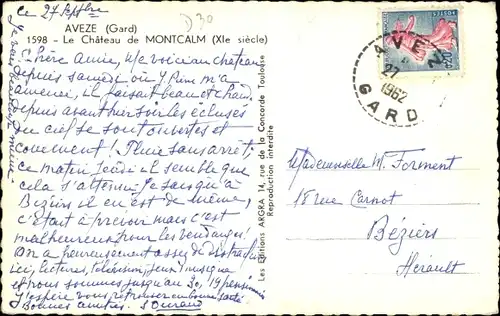 ce 27 Septbre
D30
AVEZE (Gard)
1598 - Le Château de MONTCALM (XIe siècle)
Chère Amie, Me voici au château
depuis samedi où m'a
amenée, il faisait beau et chaud.
depuis avant hier soir les écluses
du ciel se sont ouvertes et
comment ! Pluie sans arrêt,
ce matin Jeudi il semble que
cela s'atténue. Je pense qu'à
Béziers il en est de même,
c'était à prévoir mais c'est
malheureux pour les vendanges !
On a heureusement assez de distract.
ici, lectures, télévision, jeux, musique
et nous sommes jusqu'au 30, 19 pensionn.
J'espère vous retrouver en bonne santé
Bonnes amitiés. Durand
Les Editions ARGRA 14, rue de la Concorde Toulouse
Reproduction interdite
AVEZE
27
1962
GARD
POSTES
Mademoiselle M. Forment
18 rue Carnot
Béziers
Hérault